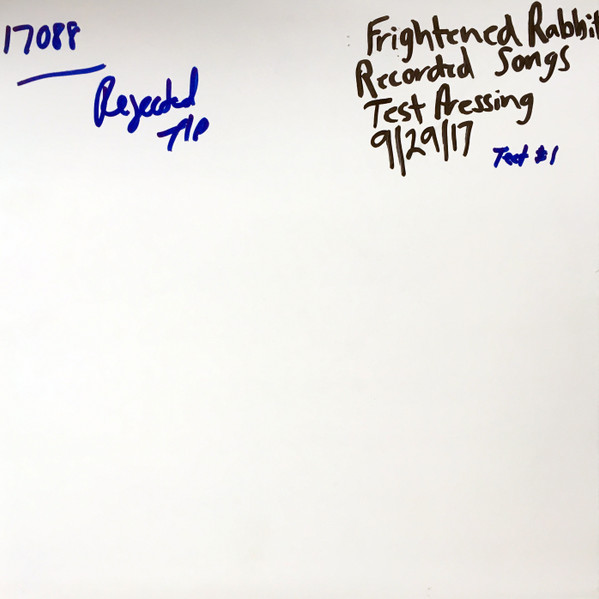 17088
Rejected
T/P
Frightened Rabbit
Recorded Songs
Test Pressing
9/29/17
Test #1